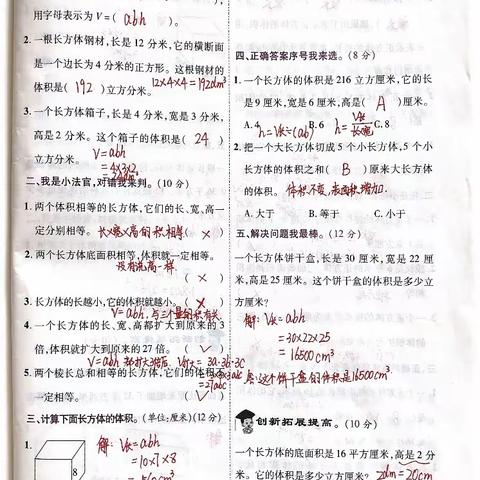 用字母表示为V=( abh )。
2. 一根长方体钢材,长是 12 分米,它的横断面
是一个边长为 4 分米的正方形。这根钢材的
体积是( 192 )立方分米。 12×4×4=192dm³
3. 一个长方体箱子,长是 4 分米,宽是 3 分米,
高是 2 分米。这个箱子的体积是( 24 )
立方分米。 V=abh
=4×3×2
=24dm³
二、我是小法官,对错我来判。(10 分)
1. 两个体积相等的长方体,它们的长、宽、高一
定分别相等。 长×宽×高的积相等 ( × )
2. 两个长方体底面积相等,体积就一定相等。
没有说高一样. ( )
3. 长方体的长越小,它的体积就越小。( × )
V=abh,与三个量的积有关
4. 一个长方体的长、宽、高都扩大到原来的 3
倍,体积就扩大到原来的 27 倍。 ( ✓ )
V=abh 3a·3b·3C
5. 两个棱长总和相等的长方体,它们的体积不
=27abc
一定相等。 ( ✓ )
三、计算下面长方体的体积。(单位:厘米)(12 分)
1. 解: V长=abh
=10×7×8
8
四、正确答案序号我来选。(8 分)
1. 一个长方体的体积是 216 立方厘米,它的长
是 9 厘米,宽是 6 厘米,高是( A )厘米。
A. 4 B. 6 C. 8
h=V长÷(ab)
2. 把一个大长方体切成 5 个小长方体,5 个小
长方体的体积之和( B )原来大长方体
的体积。 体积不变,表面积增加.
A. 大于 B. 等于 C. 小于
五、解决问题我最棒。(12 分)
一个长方体饼干盒,长是 30 厘米,宽是 22 厘
米,高是 25 厘米。这个饼干盒的体积是多少立
方厘米?
解: V长=abh
=30×22×25
=16500cm³
答:这个饼干盒的体积是16500cm³
创新拓展提高。(10 分)
一个长方体的底面积是 16 平方厘米,高是 2 分
米。它的体积是多少立方厘米? 2dm=20cm